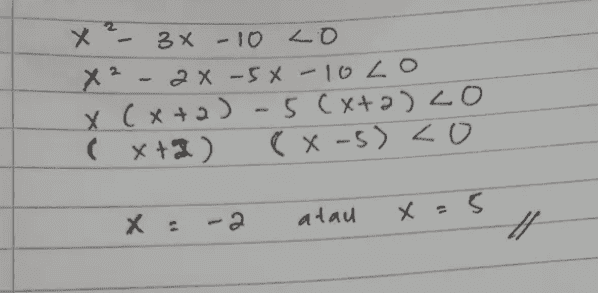 x² - 3x - 10 < 0
x² - 2x - 5x - 10 < 0
x (x + 2) - 5 (x + 2) < 0
(x + 2) (x - 5) < 0
x = -2 atau x = 5 //